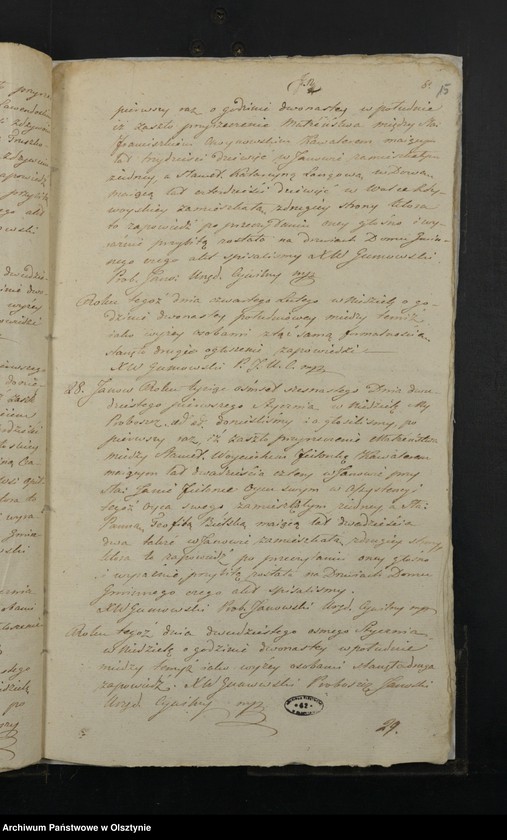 pierwszy raz o godzinie dwonastey w południe
iż zaszło przyrzeczenie Małżeństwa między Sta.
Franciszkiem Kawalerem maiącym
lat trzydzieści dziewięć w Janowie zamieszkałym
z iedney a Sławet. Katarzyną Wdową
maiącą lat czterdzieści dziewięć w
zamieszkałą z drugiey strony która
to zapowiedź po przeczytaniu oney głośno i wy-
raźnie przybitą została na drzwiach Domu Gmin-
nego czego akt spisaliśmy X W Gumowski
Prob. Janow. Urzęd. Cywilny mp
Roku tegoż dnia czwartego Lutego w Niedzielę o go-
dzinie dwonastey południowey między temiż
iako wyżey osobami z tąż samą formalnością
stanęło drugie ogłoszenie zapowiedzi
X W Gumowski P. J. U. C. mp
28. Janow Roku tysiąc ośmset szesnastego Dnia dwu-
dziestego pierwszego Stycznia w Niedzielę My
Proboszcz ad ad. donieśliśmy i ogłosiliśmy po
pierwszy raz, iż zaszło przyrzeczenie Małżeństwa
między Sławet. Woyciechem Kawalerem
maiącym lat dwadzieścia cztery w Janowie przy
Oycu swym w Assystencyi
tegoż Oyca swego zamieszkałym z iedney a Sta.
Panną Teofilą maiącą lat dwadzieścia
dwa także w Janowie zamieszkałą z drugiey strony
która to zapowiedź po przeczytaniu oney głośno
i wyraźnie przybitą została na Drzwiach Domu
Gminnego czego akt spisaliśmy.
X W Gumowski Prob. Janowski Urzd. Cywilny mp
Roku tegoż dnia dwudziestego osmego Stycznia
w Niedzielę o godzinie dwonastey w południe
między temiż iako wyżey osobami stanęła druga
zapowiedź. X W Gumowski Proboszcz Janowski
Urzd Cywilny mp
29.
Archiwum Państwowe w Olsztynie